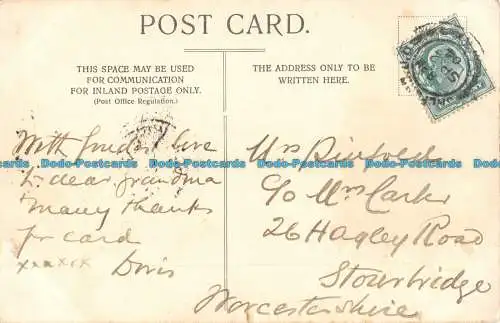 POST CARD.
THIS SPACE MAY BE USED
FOR COMMUNICATION
FOR INLAND POSTAGE ONLY.
(Post Office Regulation.)
THE ADDRESS ONLY TO BE
WRITTEN HERE.
With fondest love
to dear grandma
many thanks
for card
xxxxxx Doris
Mrs
C/o Mrs
26 Hagley Road
Stourbridge
Worcestershire
Dodo-Postcards Dodo-Postcards Dodo-Postcards Dodo-Postcards Dodo-Postcards